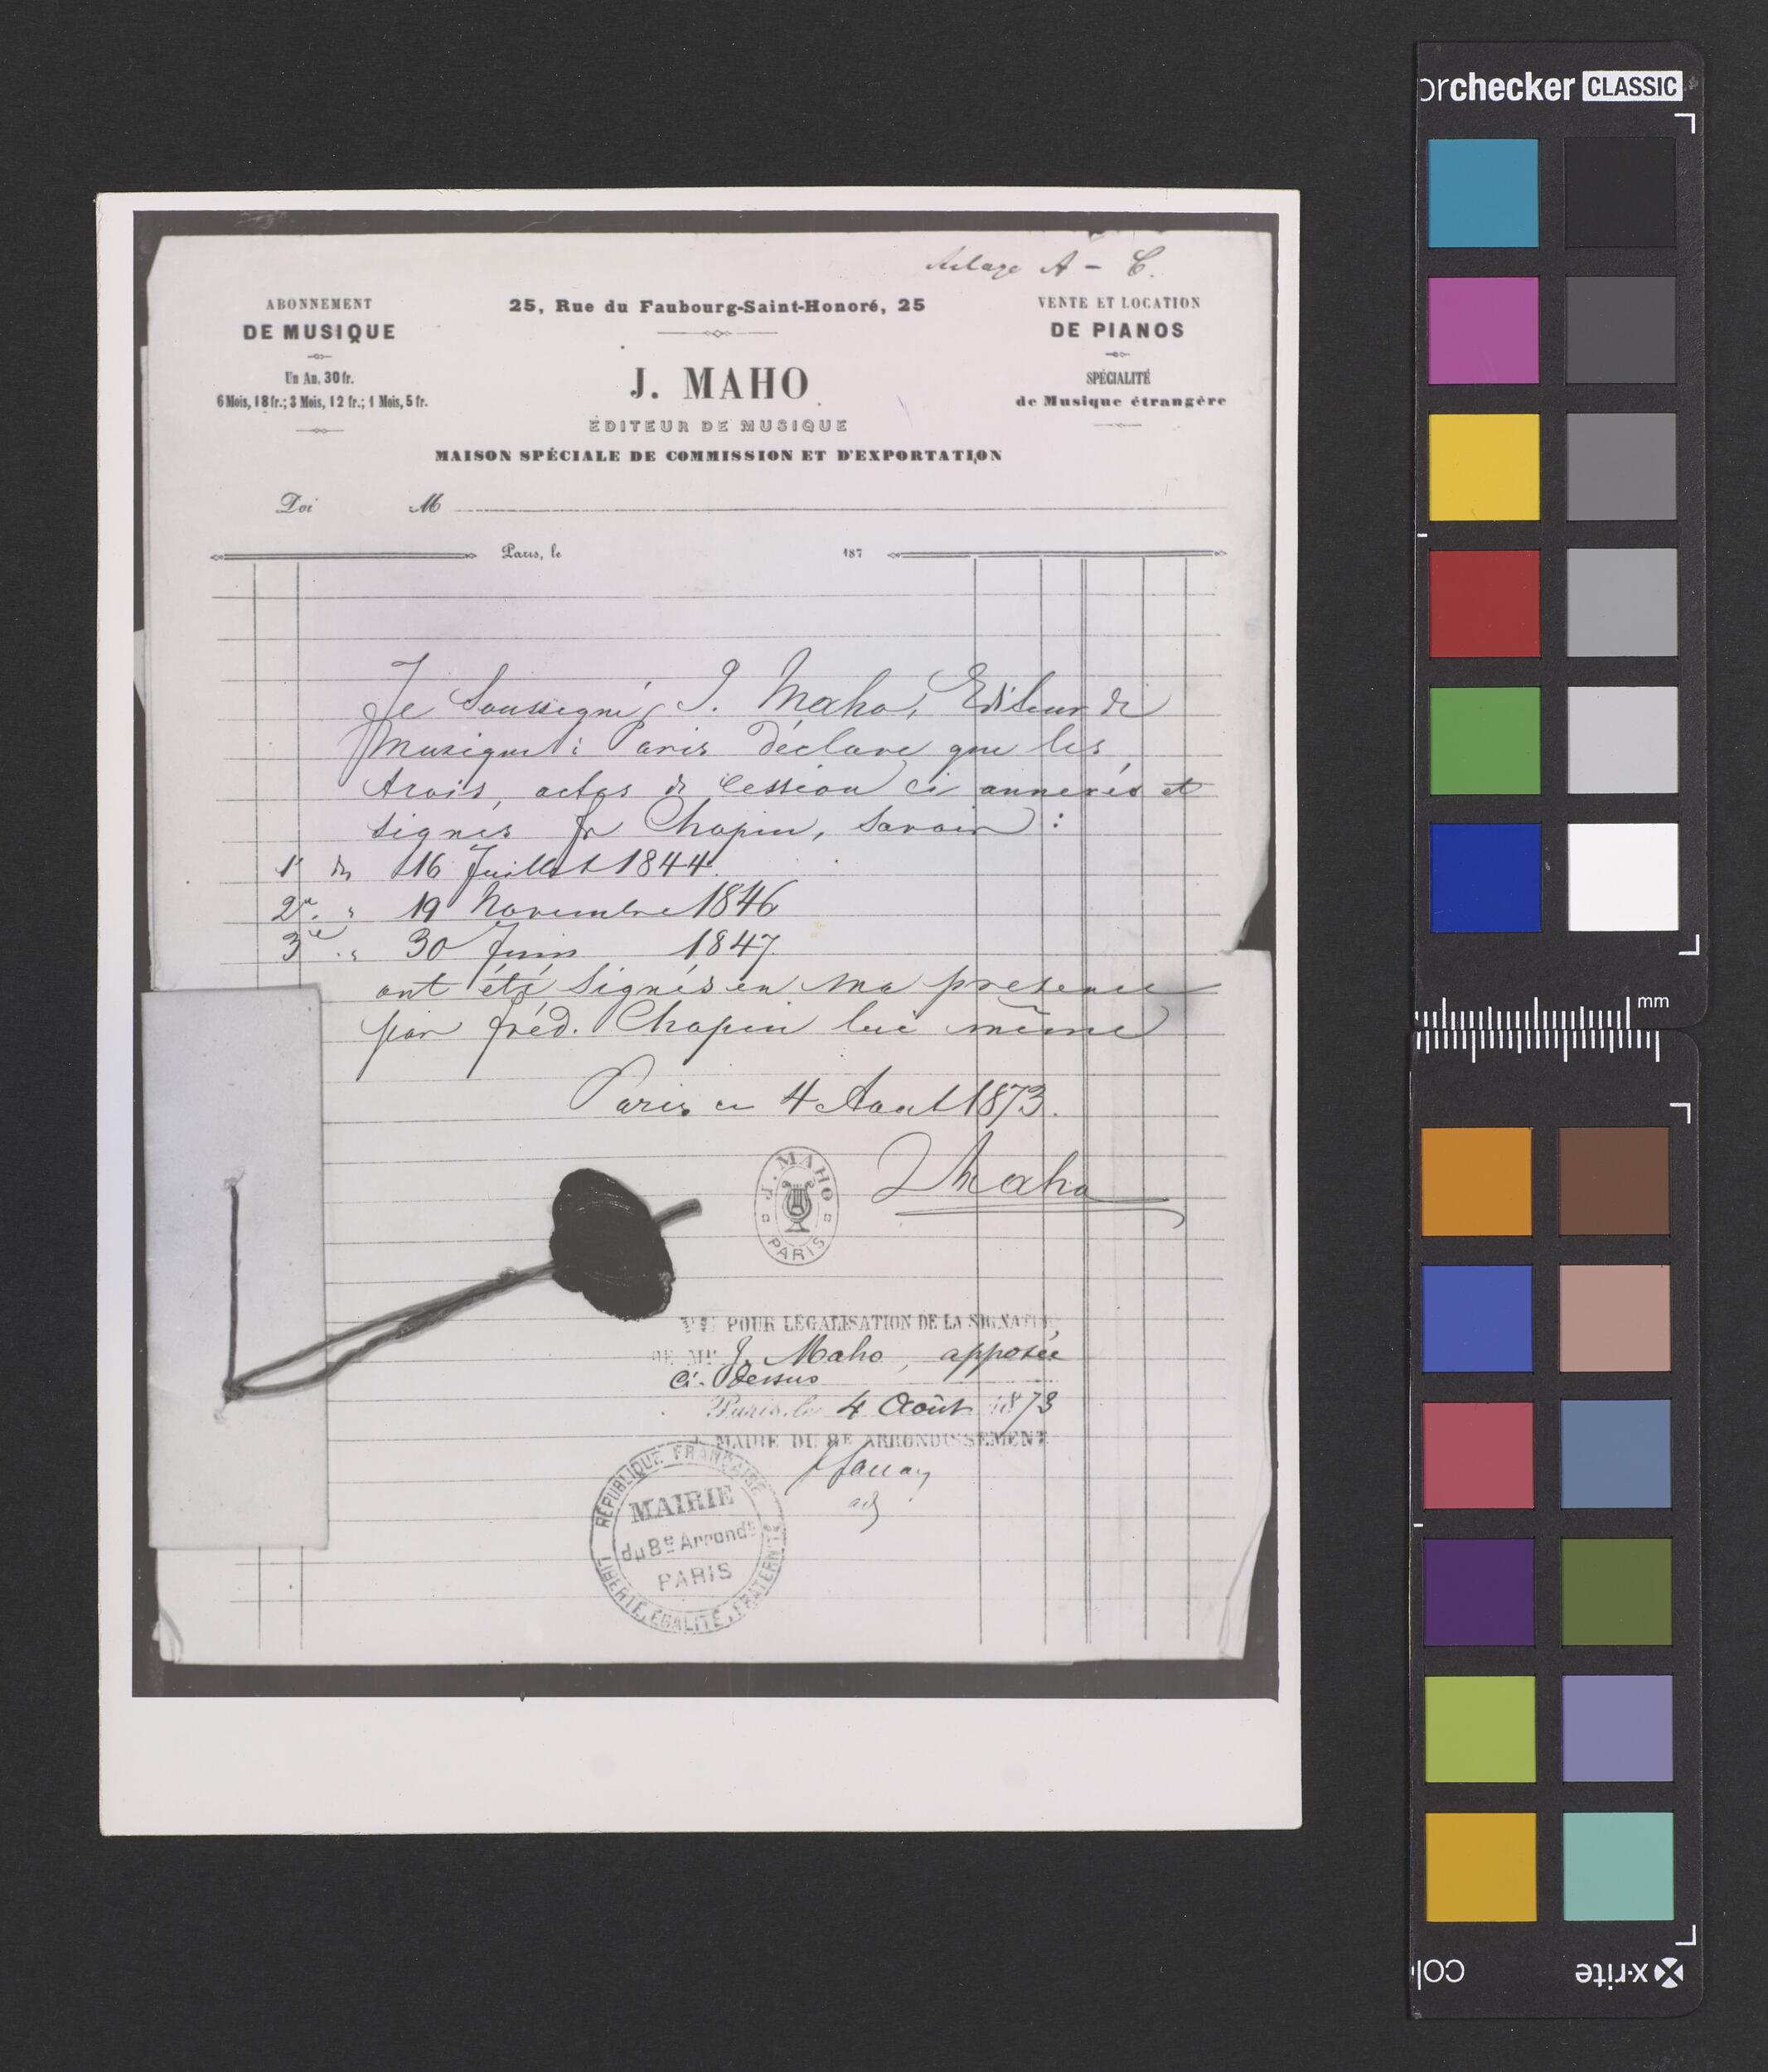 A - C.
ABONNEMENT
DE MUSIQUE
Un An, 30 fr.
6 Mois, 18 fr.; 3 Mois, 12 fr.; 1 Mois, 5 fr.
25, Rue du Faubourg-Saint-Honoré, 25
J. MAHO
ÉDITEUR DE MUSIQUE
MAISON SPÉCIALE DE COMMISSION ET D'EXPORTATION
VENTE ET LOCATION
DE PIANOS
SPÉCIALITÉ
de Musique étrangère
Doi M
Paris, le 187
Je Soussigné, J. Maho, Editeur de
musique à Paris déclare que les
trois, actes de Cession ci annexés et
signés fr Chopin, Savoir :
1° du 16 Juillet 1844.
2me. " 19 Novembre 1846
3me. " 30 Juin 1847.
ont été Signés en ma presence
par fréd. Chopin lui même
Paris ce 4 Aout 1873.
J Maho
J. MAHO
PARIS
VU POUR LÉGALISATION DE LA SIGNATURE
DE Mr J. Maho, apposée
Ci-Dessus
Paris, le 4 Août 1873
MAIRIE DU 8E ARRONDISSEMENT
adj
RÉPUBLIQUE FRANÇAISE
MAIRIE
du 8e Arrondt
PARIS
LIBERTÉ, ÉGALITÉ, FRATERNITÉ
orchecker CLASSIC
mm
col
x-rite